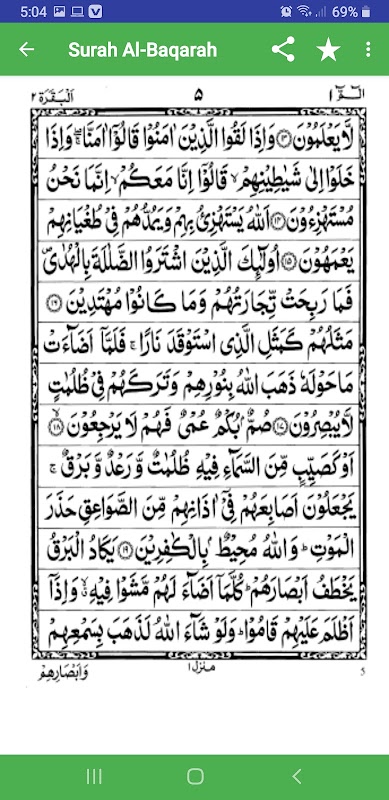 5:04 69%
Surah Al-Baqarah
الٓمّٓ ١ ٥ اَلْبَقَرَة ٢
لَّا يَعْلَمُوْنَ ﴿١٣﴾ وَاِذَا لَقُوا الَّذِيْنَ اٰمَنُوْا قَالُوْٓا اٰمَنَّا ۚۖ وَاِذَا
خَلَوْا اِلٰى شَيٰطِيْنِهِمْ ۙ قَالُوْٓا اِنَّا مَعَكُمْ ۙ اِنَّمَا نَحْنُ
مُسْتَهْزِءُوْنَ ﴿١٤﴾ اَللّٰهُ يَسْتَهْزِئُ بِهِمْ وَيَمُدُّهُمْ فِيْ طُغْيَانِهِمْ
يَعْمَهُوْنَ ﴿١٥﴾ اُولٰٓئِكَ الَّذِيْنَ اشْتَرَوُا الضَّلٰلَةَ بِالْهُدٰى ۪
فَمَا رَبِحَتْ تِّجَارَتُهُمْ وَمَا كَانُوْا مُهْتَدِيْنَ ﴿١٦﴾
مَثَلُهُمْ كَمَثَلِ الَّذِى اسْتَوْقَدَ نَارًا ۚ فَلَمَّآ اَضَآءَتْ
مَا حَوْلَهٗ ذَهَبَ اللّٰهُ بِنُوْرِهِمْ وَتَرَكَهُمْ فِيْ ظُلُمٰتٍ
لَّا يُبْصِرُوْنَ ﴿١٧﴾ صُمٌّۢ بُكْمٌ عُمْيٌ فَهُمْ لَا يَرْجِعُوْنَ ﴿١٨﴾ ۙ
اَوْ كَصَيِّبٍ مِّنَ السَّمَآءِ فِيْهِ ظُلُمٰتٌ وَّرَعْدٌ وَّبَرْقٌ ۚ
يَجْعَلُوْنَ اَصَابِعَهُمْ فِيْٓ اٰذَانِهِمْ مِّنَ الصَّوَاعِقِ حَذَرَ
الْمَوْتِ ؕ وَاللّٰهُ مُحِيْطٌۢ بِالْكٰفِرِيْنَ ﴿١٩﴾ يَكَادُ الْبَرْقُ
يَخْطَفُ اَبْصَارَهُمْ ؕ كُلَّمَآ اَضَآءَ لَهُمْ مَّشَوْا فِيْهِ ۙ وَاِذَآ
اَظْلَمَ عَلَيْهِمْ قَامُوْا ؕ وَلَوْ شَآءَ اللّٰهُ لَذَهَبَ بِسَمْعِهِمْ
5 منزل ١ وَاَبْصَارِهِمْ